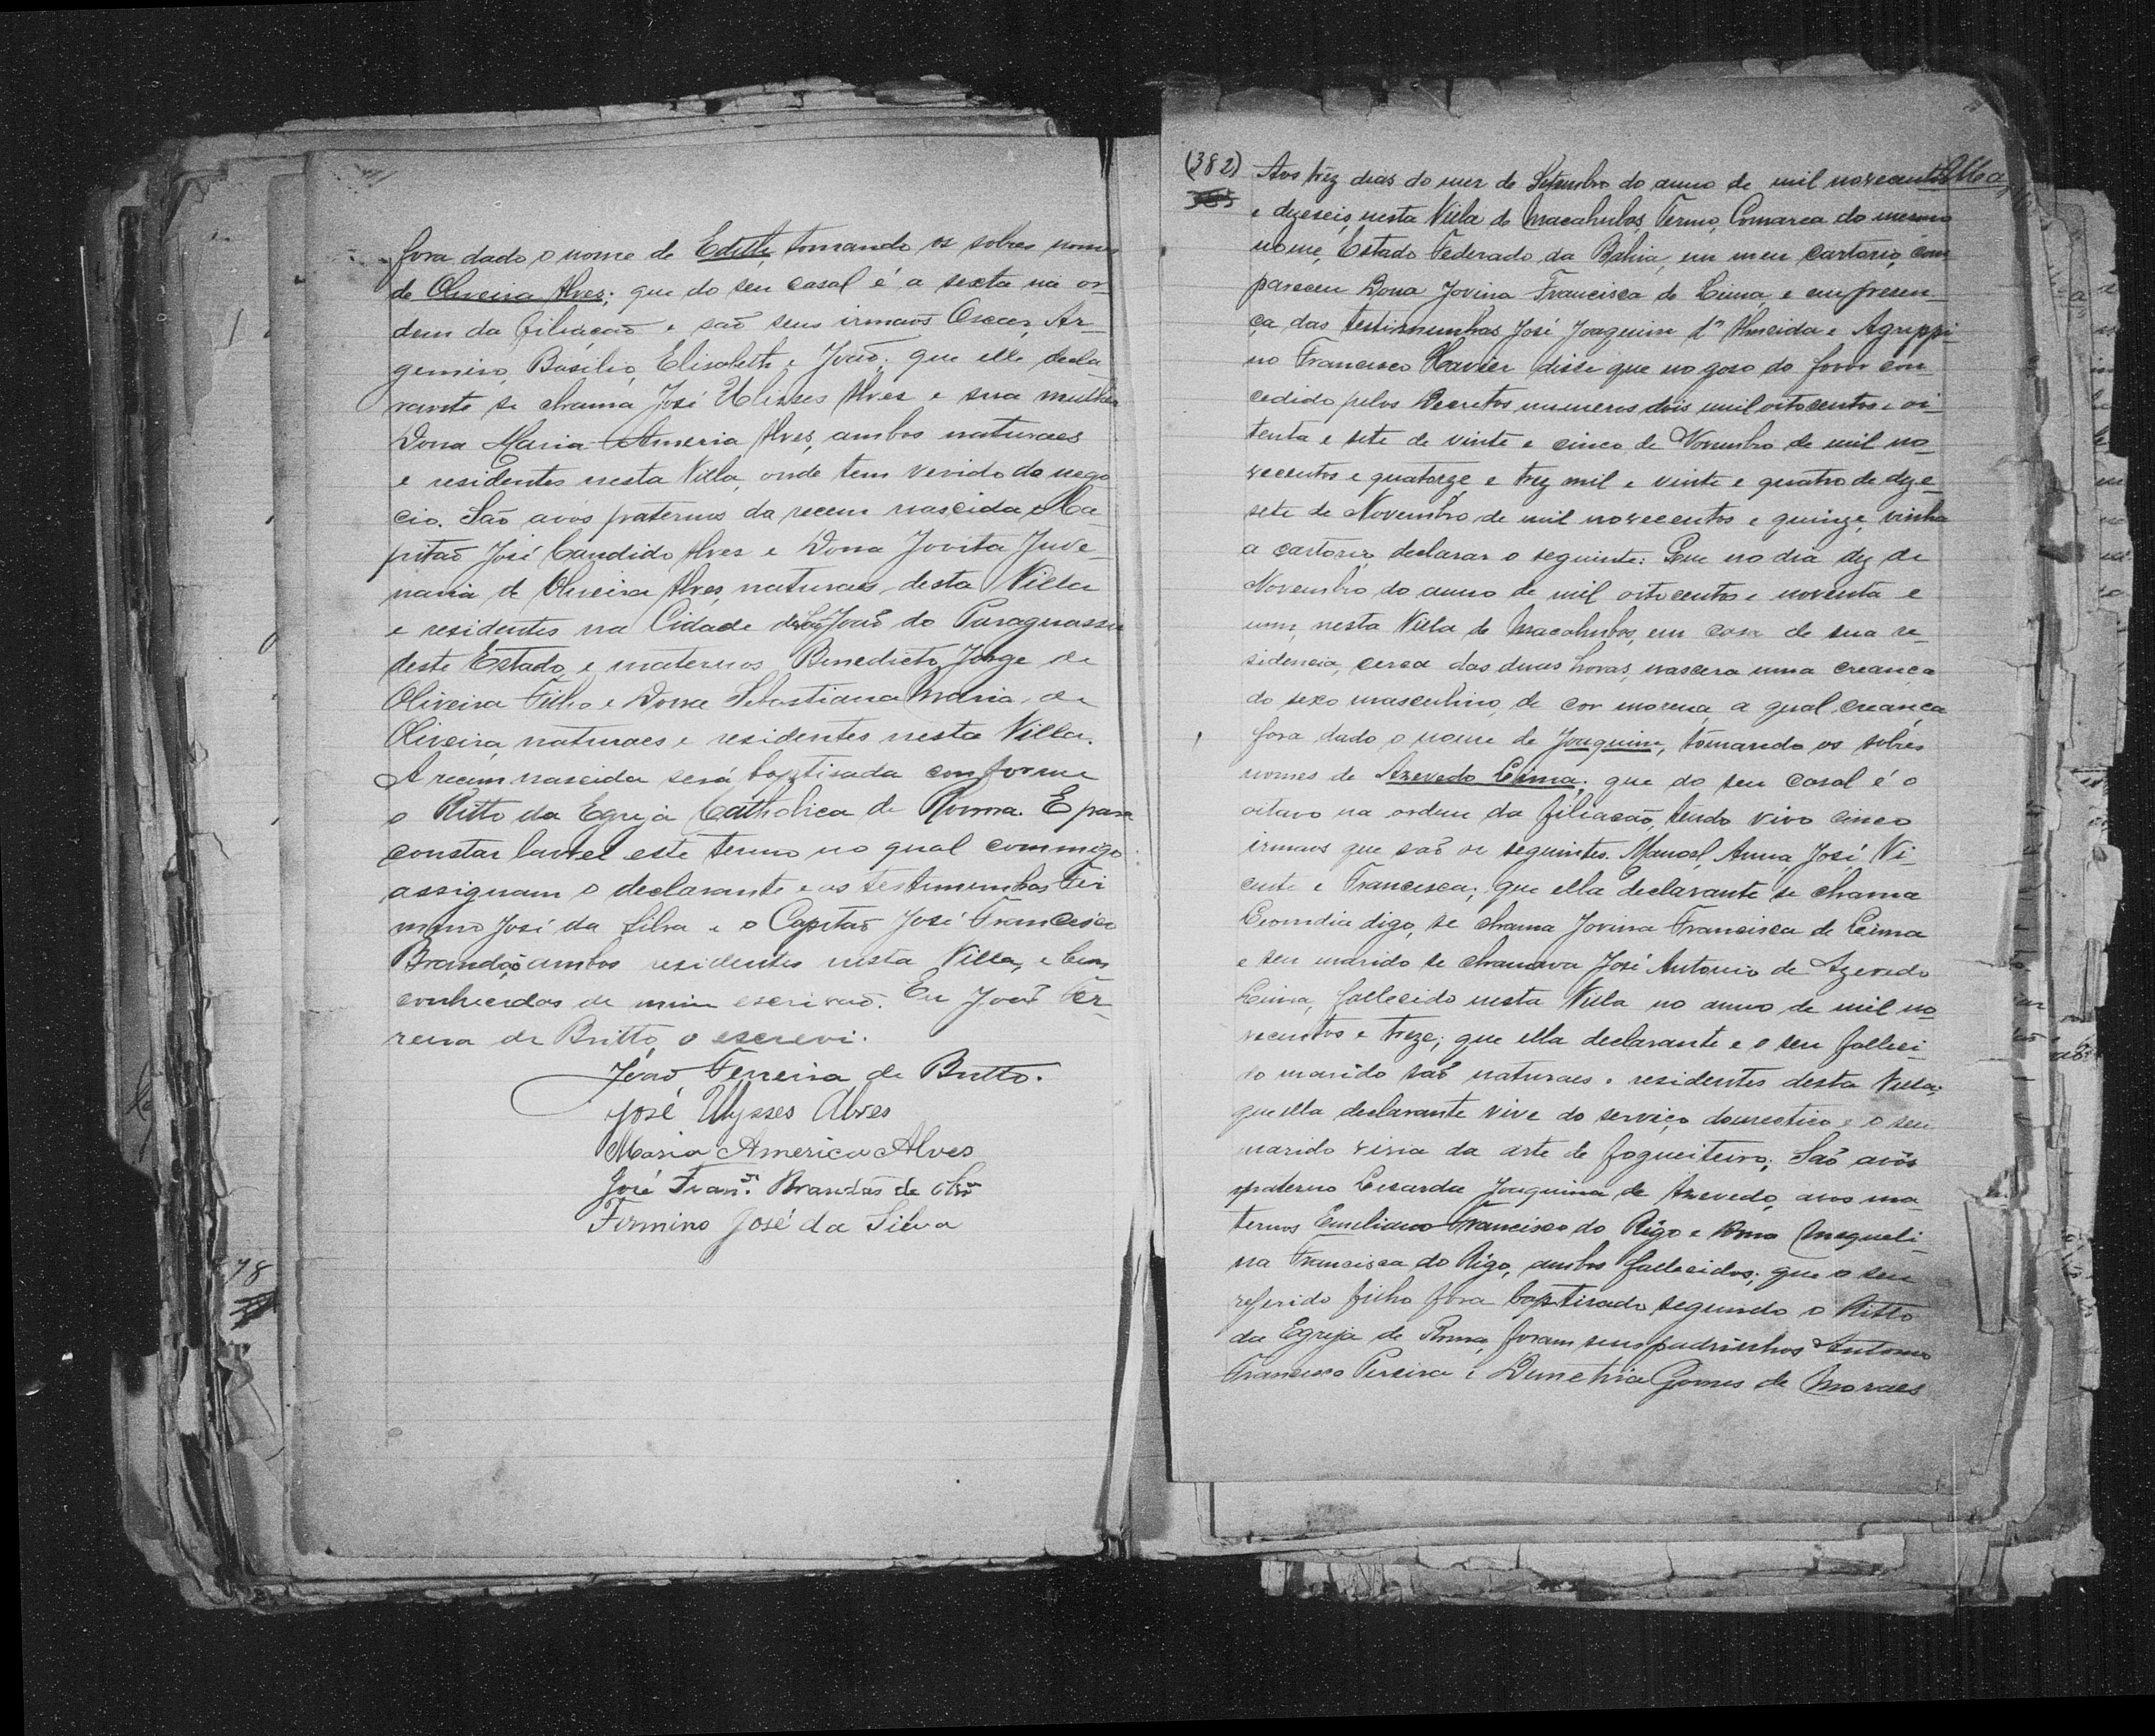 fora dado o nome de Edith, tomando os sobres nomes
de Oliveira Alves; que do seu casal é a sexta na or-
dem da filiação e são seus irmãos Oscar, Ar-
gemiro, Basilio, Elisabeth e João; que elle decla
rante se chama José Ulisses Alves e sua mulher
Dona Maria America Alves, ambos naturaes
e residentes nesta Villa, onde tem vivido do nego
cio. São avós paternos da recem nascida o Ca-
pitão José Candido Alves e Dona Jovita Juve-
naria de Oliveira Alves, naturaes desta Villa
e residentes na Cidade de São João do Paraguassu
deste Estado, e maternos Benedicto Jorge de
Oliveira Filho e Dona Sebastiana Maria de
Oliveira, naturaes e residentes nesta Villa.
A recem nascida será baptisada conforme
o Ritto da Egreja Catholica de Roma. E para
constar lavrei este termo no qual commigo
assignam o declarante e as testimunhas Fir
mino José da Silva e o Capitão José Francisco
Brandão ambos residentes nesta Villa, e bem
conhecidas de mim escrivão. Eu João Fer-
reira de Britto, o escrevi.
João Ferreira de Britto.
José Ulysses Alves
Maria America Alves
José Fran.co Brandão de
Firmino José da Silva
78
(382) Aos trez dias do mez de Setembro do anno de mil novecentos
e dezeseis, nesta Villa de Macahubas, Termo, Comarca do mesmo
nome, Estado Federado da Bahia, em meu cartorio, com
pareceu Dona Jovina Francisca de Lima, e em presen-
ça das testimunhas José Joaquim d' Almeida e Agrippi-
no Francisco Xavier disse que no goso do favor con
cedido pelos Decretos numeros dois mil oitocentos e oi-
tenta e sete de vinte e cinco de Novembro de mil no-
vecentos e quatorze e trez mil e vinte e quatro de deze-
sete de Novembro de mil novecentos e quinze, vinha
a cartorio declarar o seguinte: Que no dia dez de
Novembro do anno de mil oitocentos e noventa e
um, nesta Villa de Macahubas, em casa de sua re
sidencia, cerca das duas horas, nascera uma creança
do sexo masculino, de cor morena, a qual creança
fora dado o nome de Joaquim, tomando os sobres
nomes de Azevedo Lima; que do seu casal é o
oitavo na ordem da filiação, tendo vivo cinco
irmãos que são os seguintes. Manoel, Anna, José, Vi-
cente e Francisca; que ella declarante se chama
digo, se chama Jovina Francisca de Lima
e seu marido se chamava José Antonio de Azevedo
Lima, fallecido nesta Villa no anno de mil no
vecentos e treze; que ella declarante e o seu falleci-
do marido são naturaes e residentes desta Villa;
que ella declarante vive do serviço domestico e o seu
marido vivia da arte de fogueteiro; São avós
paterno Joaquina de Azevedo, avos ma
ternos Emeliano Francisco do Rigo e Dona
na Francisca do Rigo, ambos fallecidos; que o seu
referido filho fora baptisado segundo o Ritto
da Egreja de Roma, foram seus padrinhos Antonio
Francisco Pereira e Demetria Gomes de Moraes